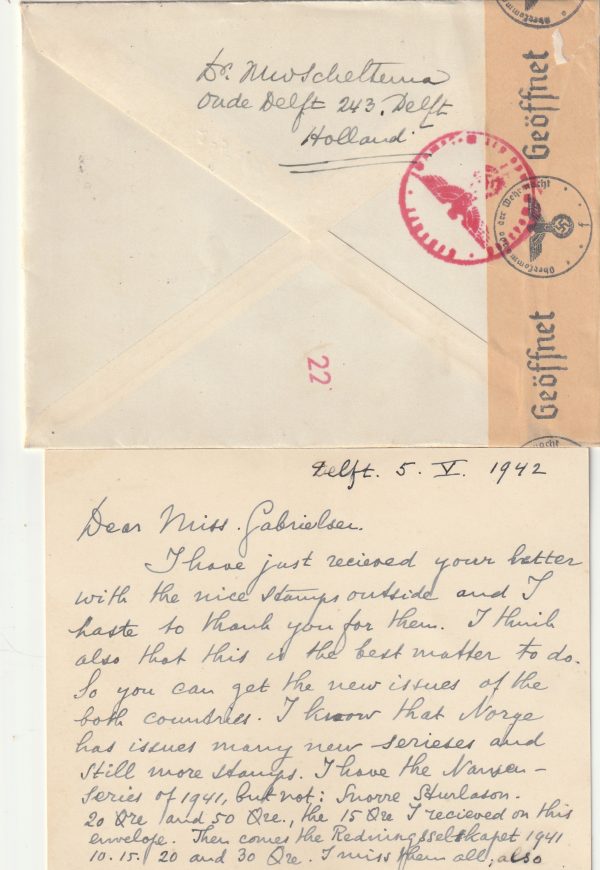 Dr. Scheltema
Oude Delft 243. Delft
Holland
Geöffnet
Oberkommando der Wehrmacht
Geöffnet
22
Delft. 5. V. 1942
Dear Miss. Gabrielsen.
I have just recieved your letter
with the nice stamps outside and I
haste to thank you for them. I think
also that this is the best matter to do.
So you can get the new issues of the
both countries. I know that Norge
has issues many new serieses and
still more stamps. I have the Nansen-
series of 1941, but not: Snorre Sturlason.
20 Öre and 50 Öre., the 15 Öre I recieved on this
envelope. Then comes the Redningsselskapet 1941
10. 15. 20 and 30 Öre. I miss them all, also